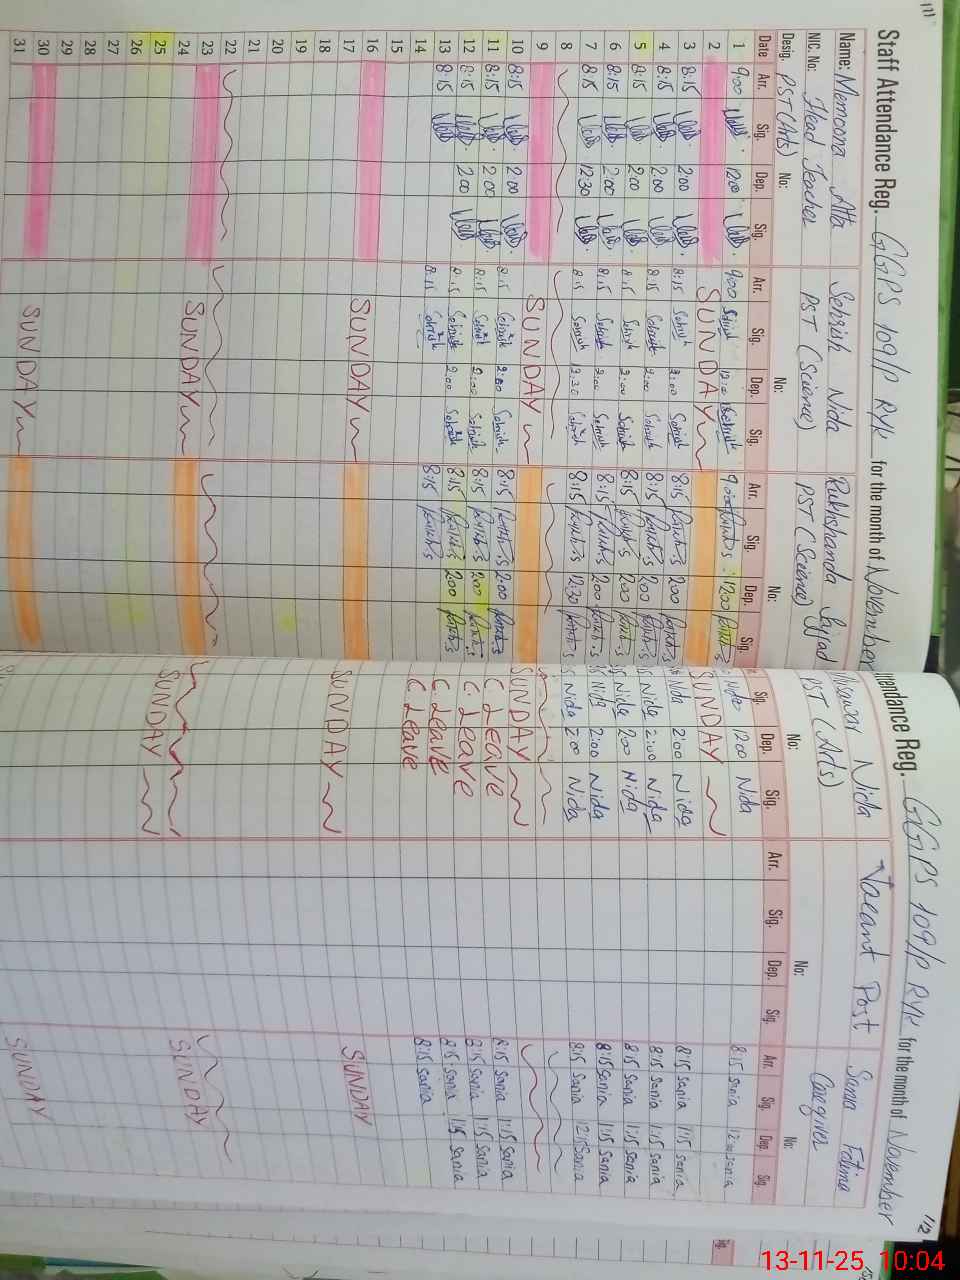 Staff Attendance Reg. GGPS 109/P RYK for the month of November
Name: Memoona Atta
Sehrish Nida
Rukhshanda Sajjad
NIC. No: Head Teacher
PST (Science)
PST (Science)
Desig. PST (Arts) No:
No:
No:
Date Arr. Sig. Dep. Sig. Arr. Sig. Dep. Sig. Arr. Sig. Dep. Sig.
1 9:00 12:00 9:00 Sehrish Sehrish 12:00
2 SUNDAY
3 8:15 2:00 8:15 Sehrish 2:00 Sehrish 8:15 2:00
4 8:15 2:00 8:15 Sehrish 2:00 Sehrish 8:15 2:00
5 8:15 2:00 8:15 Sehrish 2:00 Sehrish 8:15 2:00
6 8:15 2:00 8:15 Sehrish 2:00 Sehrish 8:15 2:00
7 8:15 12:30 8:15 Sehrish 12:30 Sehrish 8:15 12:30
8
9 SUNDAY
10 8:15 2:00 8:15 Sehrish 2:00 Sehrish 8:15 2:00
11 8:15 2:00 8:15 Sehrish 2:00 Sehrish 8:15 2:00
12 8:15 2:00 8:15 Sehrish 2:00 Sehrish 8:15 2:00
13 8:15 8:15 Sehrish 8:15
14
15
16 SUNDAY
17
18
19
20
21
22
23 SUNDAY
24
25
26
27
28
29
30 SUNDAY
31
endance Reg. GGPS 109/P RYK for the month of November 112
Nida
Vacant Post
Sania Fatima
PST (Arts)
Caregiver
No:
No:
No:
Sig. Dep. Sig. Arr. Sig. Dep. Sig. Arr. Sig. Dep. Sig.
Nida 12:00 Nida 8:15 Sania 12:00 Sania
SUNDAY
Nida 2:00 Nida 8:15 Sania 1:15 Sania
Nida 2:00 Nida 8:15 Sania 1:15 Sania
Nida 2:00 Nida 8:15 Sania 1:15 Sania
Nida 2:00 Nida 8:15 Sania 1:15 Sania
Nida 2:00 Nida 8:15 Sania 12:15 Sania
SUNDAY
C. Leave 8:15 Sania 1:15 Sania
C. Leave 8:15 Sania 1:15 Sania
C. Leave 8:15 Sania 1:15 Sania
C. Leave 8:15 Sania
SUNDAY SUNDAY
SUNDAY SUNDAY
SUNDAY
13-11-25, 10:04